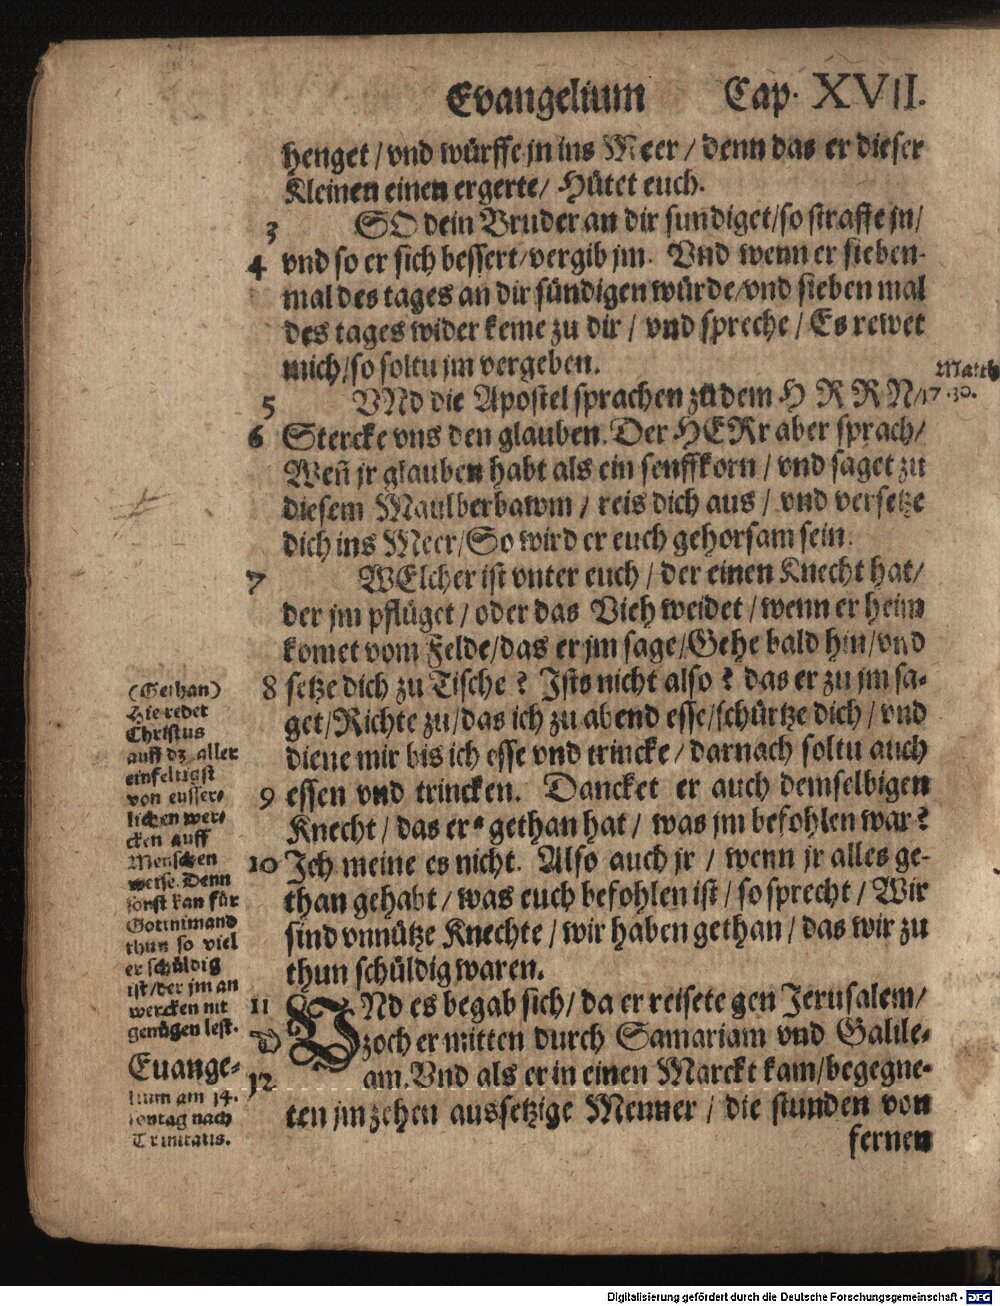 Evangelium Cap. XVII.
henget / vnd würffe jn ins Meer / denn das er dieser
Kleinen einen ergerte / Hütet euch.
3 SO dein Bruder an dir sundiget / so straffe jn /
4 vnd so er sich bessert / vergib jm. Vnd wenn er sieben-
mal des tages an dir sündigen würde / vnd sieben mal
des tages wider keme zu dir / vnd spreche / Es rewet
mich / so soltu jm vergeben.
Matth
5 VNd die Apostel sprachen zu dem HRRN /
17.30.
6 Stercke vns den glauben. Der HERr aber sprach /
Weñ jr glauben habt als ein senffkorn / vnd saget zu
diesem Maulberbawm / reis dich aus / vnd versetze
dich ins Meer / So wird er euch gehorsam sein.
7 WElcher ist vnter euch / der einen Knecht hat /
der jm pflüget / oder das Vieh weidet / wenn er heim
komet vom Felde / das er jm sage / Gehe bald hin / vnd
8 setze dich zu Tische ? Ists nicht also ? das er zu jm sa-
get / Richte zu / das ich zu abend esse / schürtze dich / vnd
diene mir bis ich esse vnd trincke / darnach soltu auch
9 essen vnd trincken. Dancket er auch demselbigen
Knecht / das er * gethan hat / was jm befohlen war ?
10 Ich meine es nicht. Also auch jr / wenn jr alles ge-
than gehabt / was euch befohlen ist / so sprecht / Wir
sind vnnütze Knechte / wir haben gethan / das wir zu
thun schüldig waren.
11 VNd es begab sich / da er reisete gen Jerusalem /
D zoch er mitten durch Samariam vnd Galile-
12 am. Vnd als er in einen Marckt kam / begegne-
ten jm zehen aussetzige Menner / die stunden von
fernen
(Gethan)
Hie redet
Christus
auff dz aller
einfeltigst
von eusser-
lichen wer-
cken auff
Menschen
weise. Denn
sonst kan für
Gott nimand
thun so viel
er schüldig
ist / der jm an
wercken nit
genügen lest.
Euange-
lium am 14.
sontag nach
Trinitatis.
Digitalisierung gefördert durch die Deutsche Forschungsgemeinschaft - DFG